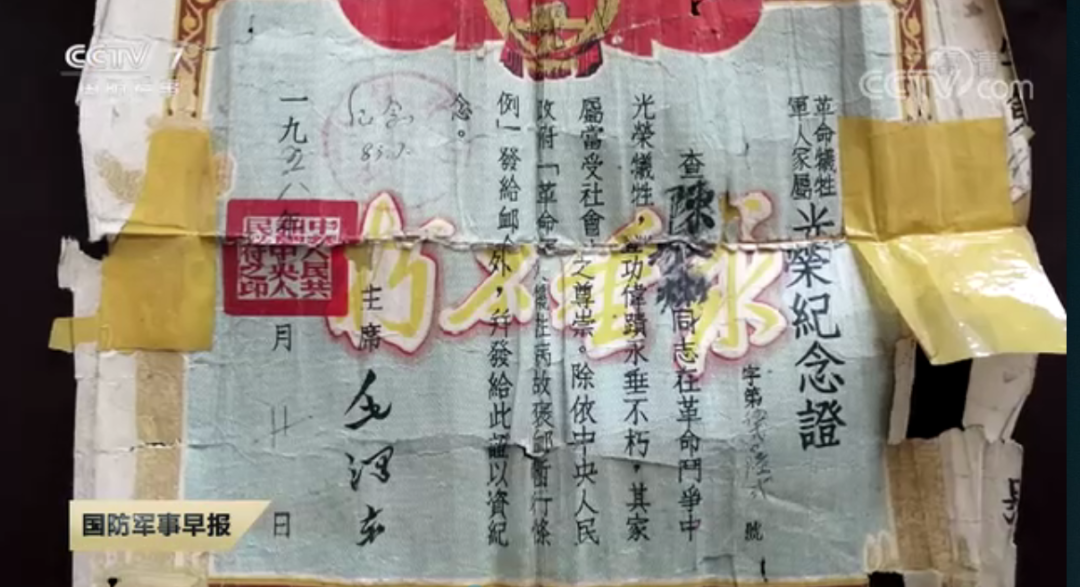 CCTV 7
国防军事
CCTV.com
革命犧牲
軍人家屬
光榮紀念證
字第 號
查陳 同志在革命鬥爭中
光榮犧牲，豐功偉蹟永垂不朽，其家
屬當受社會上之尊崇。除依中央人民
政府「革命軍人犧牲病故褒卹暫行條
例」發給卹金外，并發給此證以資紀
念。
主席 毛澤東
一九五八年 月 日
永垂不朽
中華人民共
和國中央人
民政府之印
纪念
国防军事早报